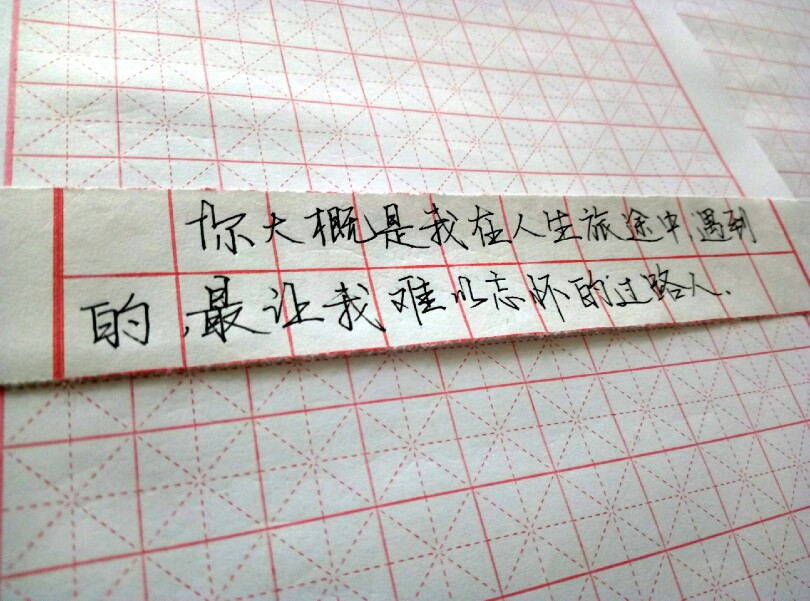 你大概是我在人生旅途中,遇到
的,最让我难以忘怀的过路人.